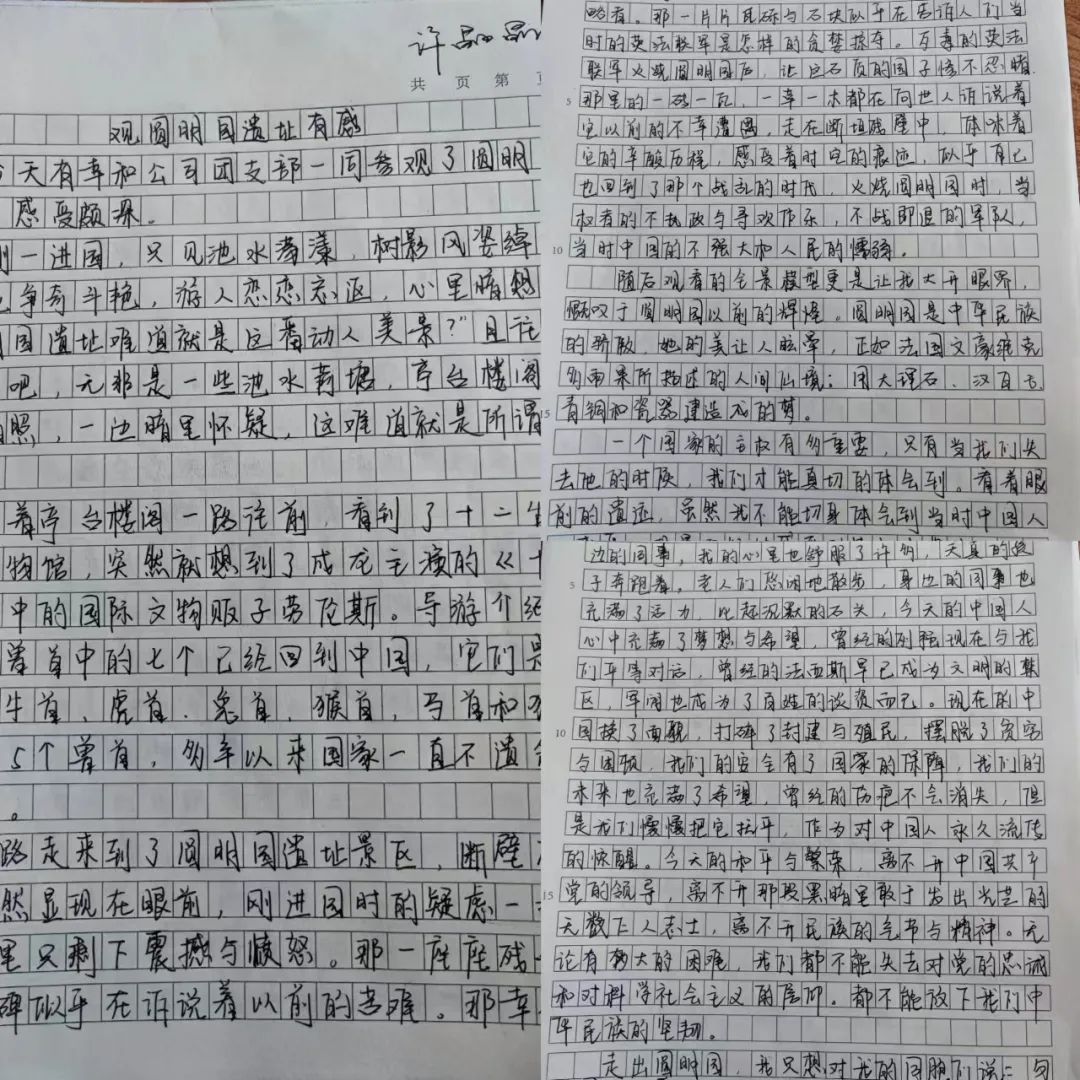 许品品
共 页 第 页
观圆明园遗址有感
今天有幸和公司团支部一同参观了圆明
感受颇深。
一进园，只见池水荡漾，树影风姿绰
争奇斗艳，游人恋恋忘返，心里暗想
园遗址难道就是这番动人美景？”且往
吧，无非是一些池水荷塘，亭台楼阁
照，一边暗里怀疑，这难道就是所谓
着亭台楼阁一路往前，看到了十二生
物馆，突然就想到了成龙主演的《十
中的国际文物贩子劳伦斯。导游介绍
兽首中的七个已经回到中国，它们是
牛首、虎首、兔首，猴首，马首和猪
5个兽首，多年以来国家一直不遗余
。
路走来到了圆明园遗址景区，断壁
然显现在眼前，刚进园时的疑虑一
里只剩下震撼与愤怒。那一座座残
碑似乎在诉说着以前的苦难。那幸
略着。那一片片瓦砾与石块似乎在告诉人们当
时的英法联军是怎样的贪婪掠夺。万毒的英法
联军火烧圆明园后，让这石质的园子惨不忍睹
5
那里的一砖一瓦，一草一木都在向世人诉说着
它以前的不幸遭遇，走在断垣残壁中，体味着
它的辛酸历程，感受着时空的痕迹，似乎自己
也回到了那个战乱的时代，火烧圆明园时，当
权者的不执政与寻欢作乐，不战即退的军队，
10
当时中国的不强大和人民的懦弱。
随后观看的全景模型更是让我大开眼界，
慨叹于圆明园以前的辉煌。圆明园是中华民族
的骄傲，她的美让人眩晕，正如法国文豪维克
多雨果所描述的人间仙境：用大理石、汉白玉、
15
青铜和瓷器建造成的梦。
一个国家的主权有多重要，只有当我们失
去他的时候，我们才能真切的体会到。看着眼
前的遗迹，虽然我不能切身体会到当时中国人
边的同事，我的心里也舒服了许多，天真的孩
5
子奔跑着，老人们悠闲地散步，身边的同事也
充满了活力，比起沉默的石头，今天的中国人
心中充满了梦想与希望，曾经的列强现在与我
们平等对话，曾经的法西斯早已成为文明的禁
区，军阀也成为了百姓的谈资而已。现在的中
10
国换了面貌，打碎了封建与殖民，摆脱了贫穷
与困顿，我们的安全有了国家的保障，我们的
未来也充满了希望，曾经的伤疤不会消失，但
是我们慢慢把它抚平，作为对中国人永久流传
的惊醒。今天的和平与繁荣，离不开中国共产
15
党的领导，离不开那段黑暗里敢于发出光芒的
无数仁人志士，离不开民族的气节与精神。无
论有多大的困难，我们都不能失去对党的忠诚
和对科学社会主义的信仰。都不能放下我们中
华民族的坚韧。
走出圆明园，我只想对我的同胞们说一句